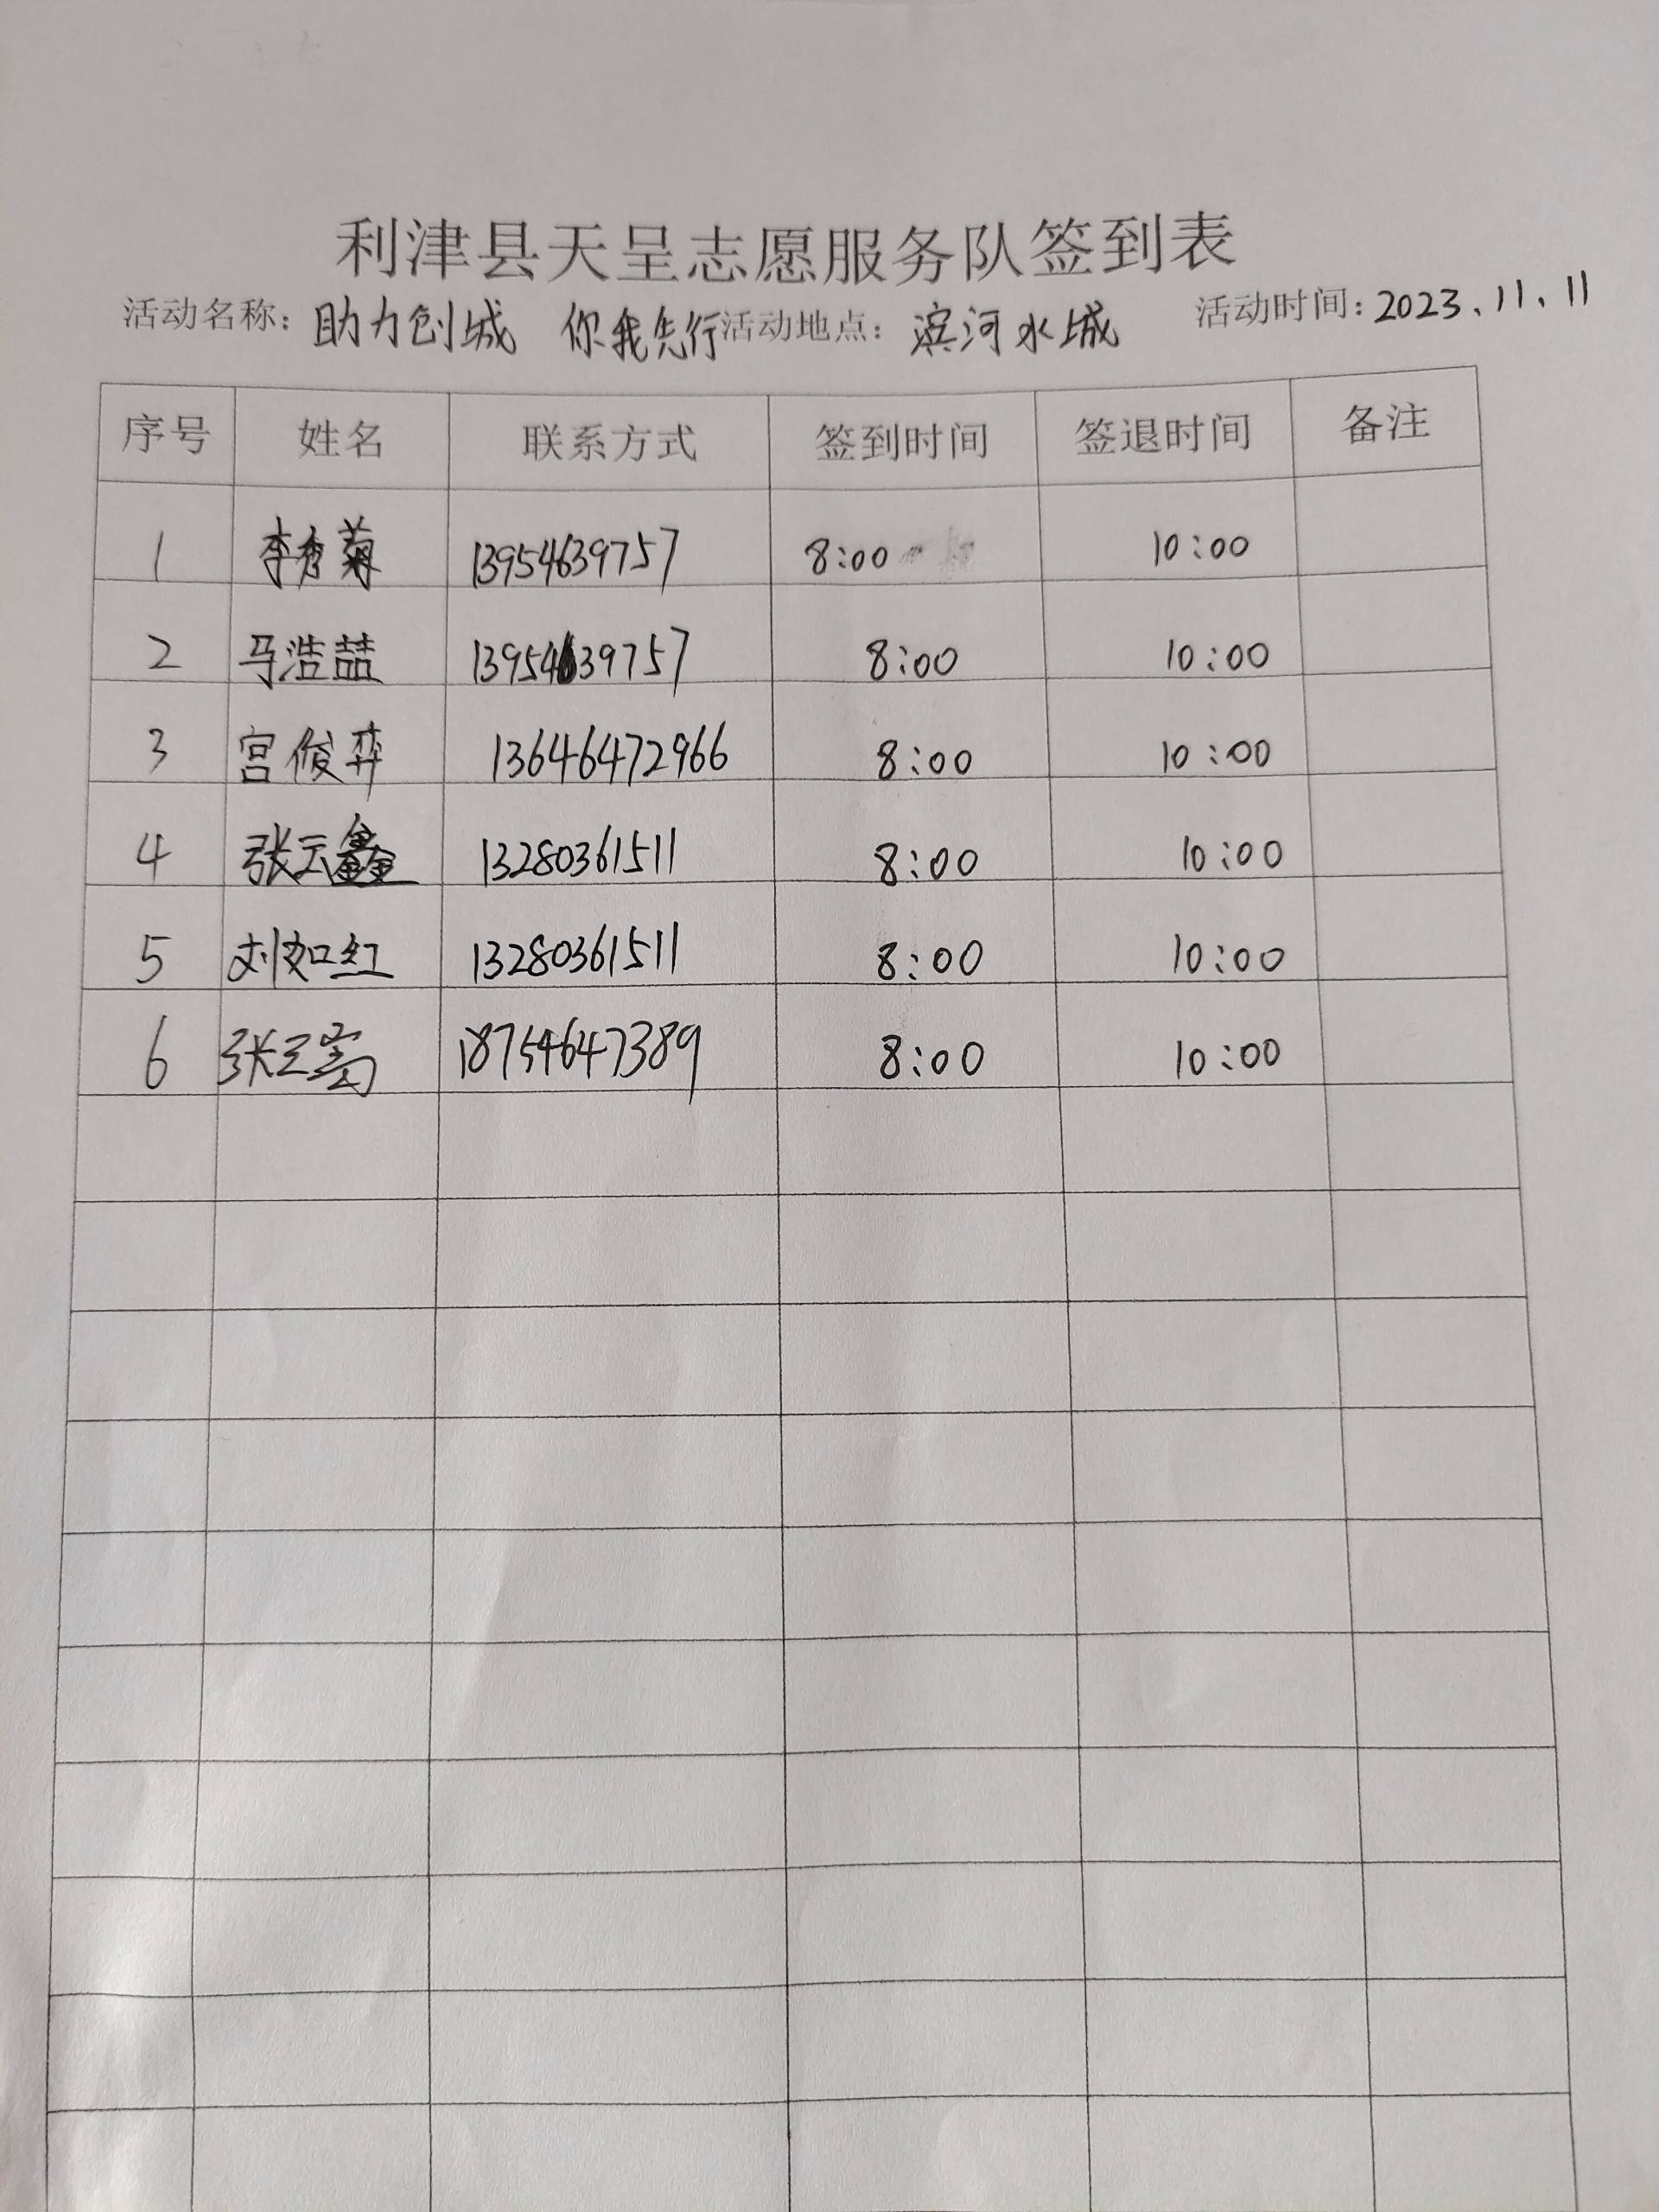 利津县天呈志愿服务队签到表
活动名称：助力创城 你我先行 活动地点：滨河水城 活动时间：2023.11.11
序号 姓名 联系方式 签到时间 签退时间 备注
1 李秀菊 13954639757 8:00 10:00
2 马浩喆 13954639757 8:00 10:00
3 宫俊弈 13646472966 8:00 10:00
4 张云鑫 13280361511 8:00 10:00
5 刘如红 13280361511 8:00 10:00
6 张 18754647389 8:00 10:00